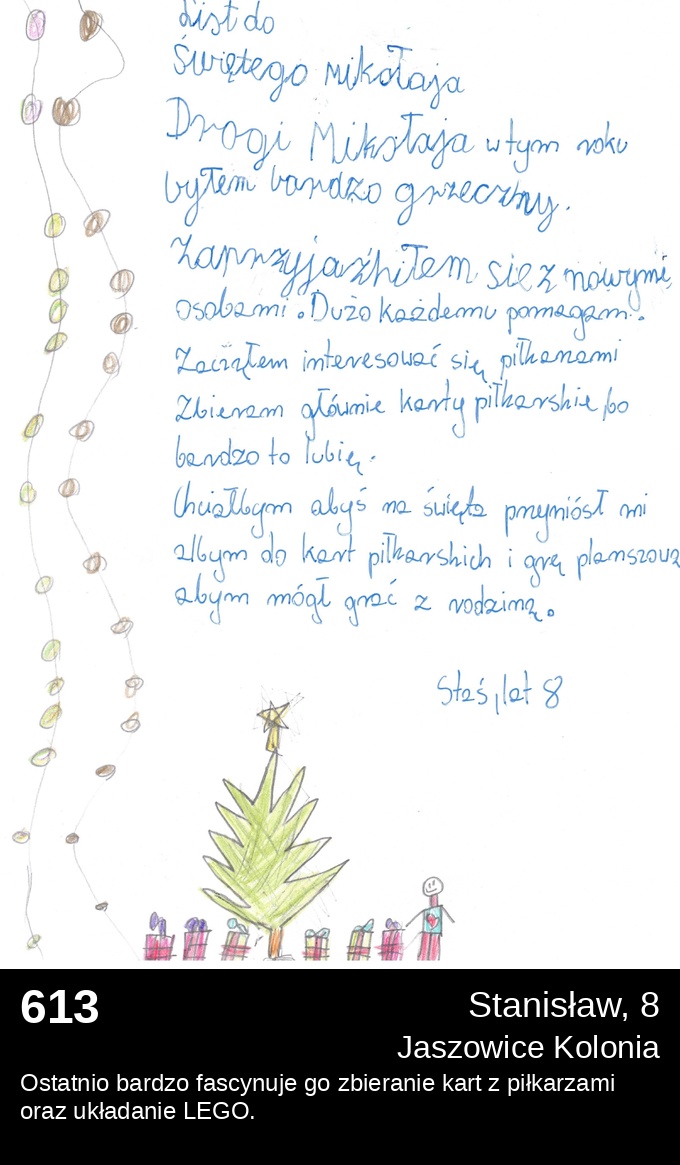 List do
Świętego Mikołaja
Drogi Mikołaja w tym roku
byłem bardzo grzeczny.
Zaprzyjaźniłem się z nowymi
osobami. Dużo każdemu pomagam.
Zacząłem interesować się piłkanami
Zbieram głównie karty piłkarskie, bo
bardzo to lubię.
Chciałbym abyś na święta przyniósł mi
album do kart piłkarskich i grę planszową
abym mógł grać z rodziną.
Staś, lat 8
613
Stanisław, 8
Jaszowice Kolonia
Ostatnio bardzo fascynuje go zbieranie kart z piłkarzami
oraz układanie LEGO.